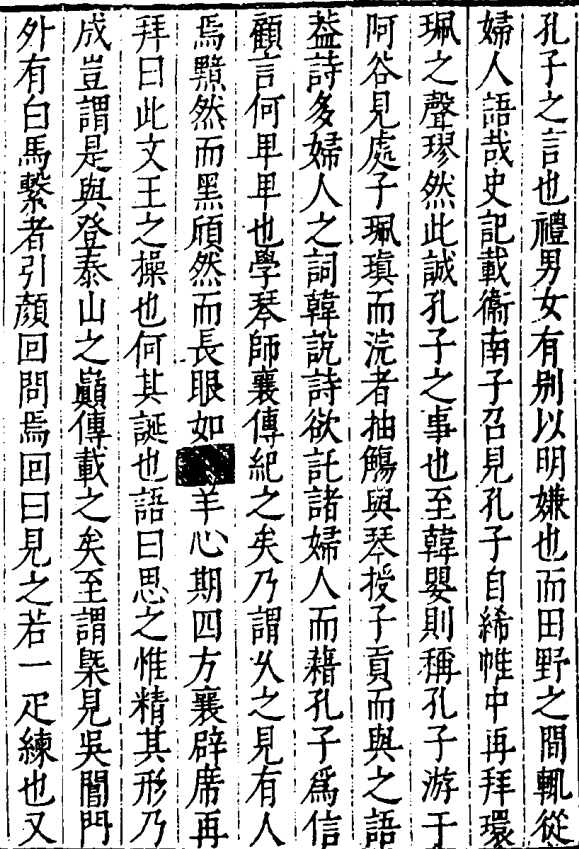 孔子之言也禮男女有別以明嫌也而田野之間輒從
婦人語哉史記載衞南子召見孔子自絺帷中再拜環
珮之聲璆然此誠孔子之事也至韓嬰則稱孔子游于
阿谷見處子珮瑱而浣者抽觴與琴授子貢而與之語
葢詩多婦人之詞韓說詩欲託諸婦人而藉孔子爲信
顧言何卑卑也學琴師襄傳紀之矣乃謂久之見有人
焉黮然而黑頎然而長眼如羊心期四方襄辟席再
拜曰此文王之操也何其誕也語曰思之惟精其形乃
成豈謂是與登泰山之巔傳載之矣至謂槩見吳閶門
外有白馬繫者引顏回問焉回曰見之若一疋練也又